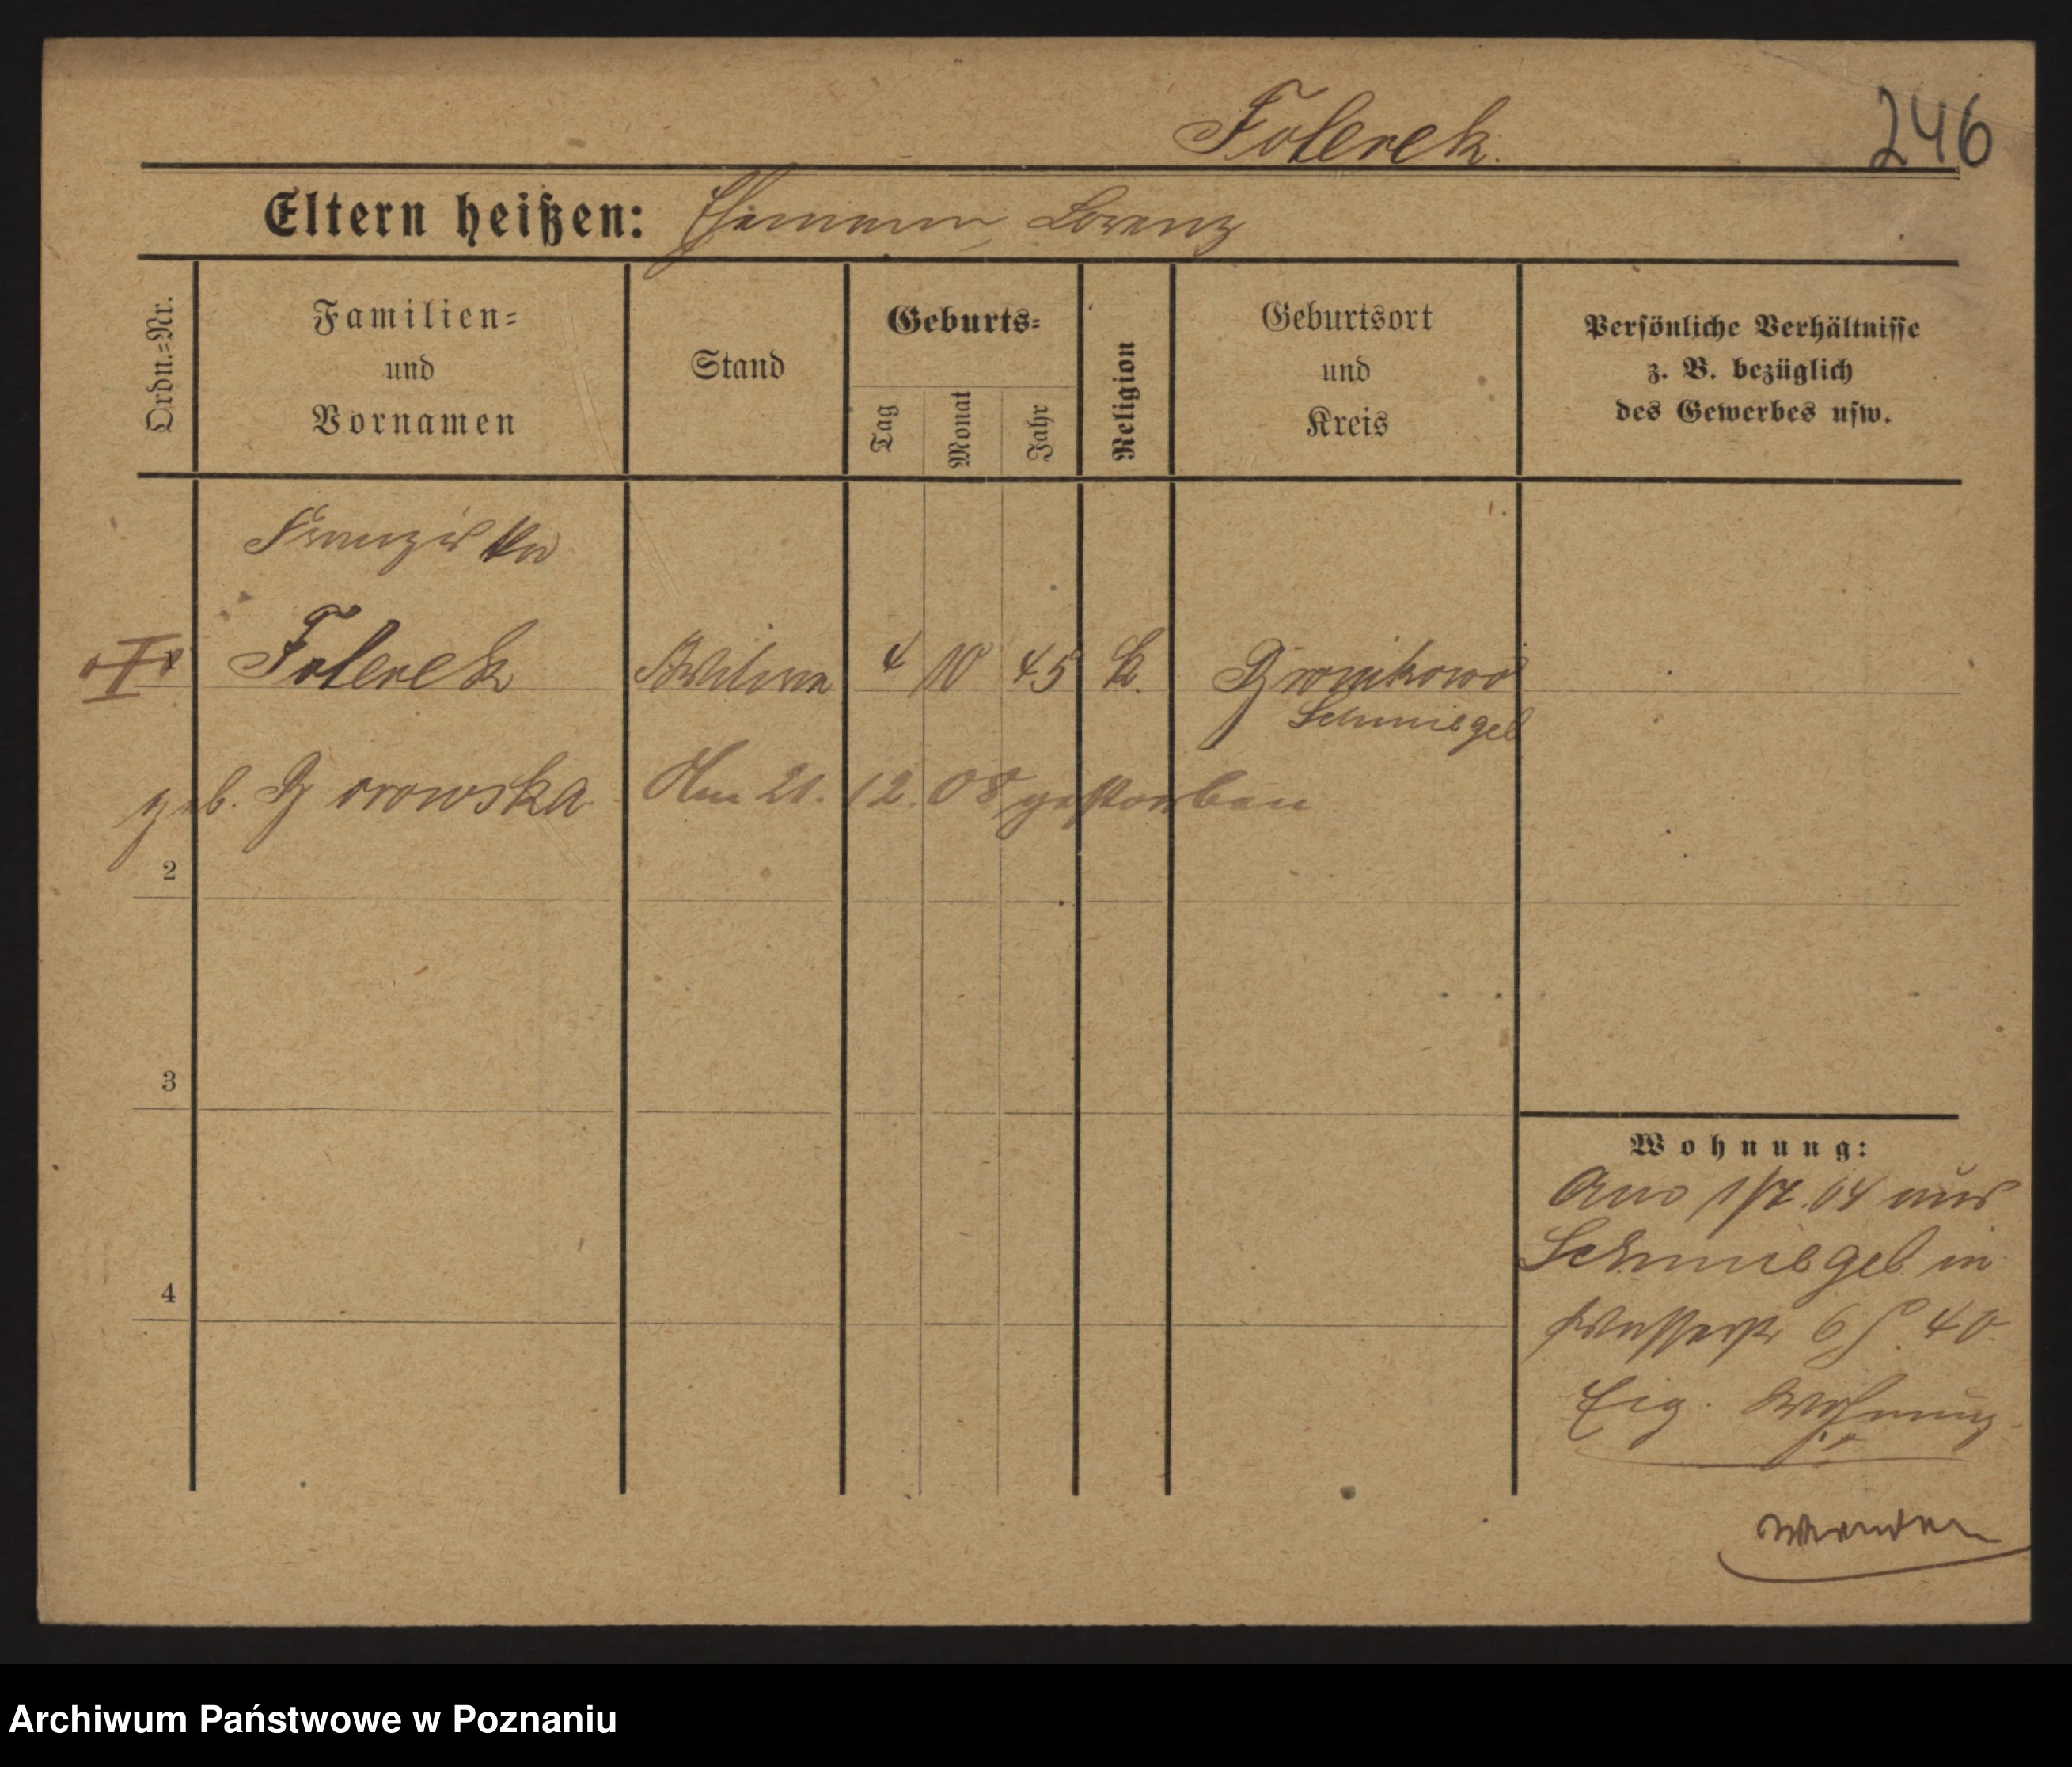 Folerek.
246
Eltern heißen: Ehemann Lorenz
Ordn.-Nr.
Familien-
und
Vornamen
Stand
Geburts-
Tag
Monat
Jahr
Religion
Geburtsort
und
Kreis
Persönliche Verhältnisse
z. B. bezüglich
des Gewerbes usw.
Franziska
Folerek Witwe 4 10 45 k. Bronikowo
Schmiegel
geb. Borowska Am 21. 12. 08 gestorben
2
3
4
Wohnung:
Am 1/7. 04 aus
Schmiegel in
Wasserstr 6 40
Eig. Wohnung
Archiwum Państwowe w Poznaniu